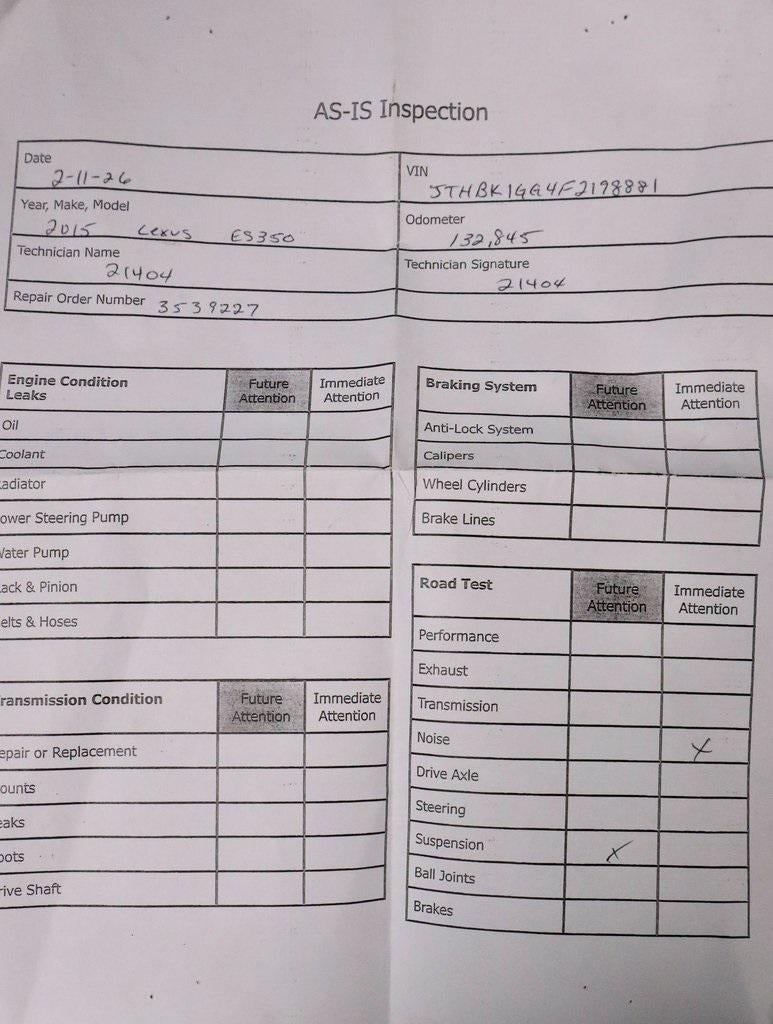 AS-IS Inspection
Date
2-11-26
VIN
JTHBK1GG4F2198881
Year, Make, Model
2015 Lexus ES350
Odometer
132,845
Technician Name
21404
Technician Signature
21404
Repair Order Number 3539227
Engine Condition
Leaks
Future
Attention
Immediate
Attention
Oil
Coolant
adiator
ower Steering Pump
Water Pump
ack & Pinion
elts & Hoses
ransmission Condition
Future
Attention
Immediate
Attention
epair or Replacement
ounts
eaks
oots
rive Shaft
Braking System
Future
Attention
Immediate
Attention
Anti-Lock System
Calipers
Wheel Cylinders
Brake Lines
Road Test
Future
Attention
Immediate
Attention
Performance
Exhaust
Transmission
Noise X
Drive Axle
Steering
Suspension X
Ball Joints
Brakes